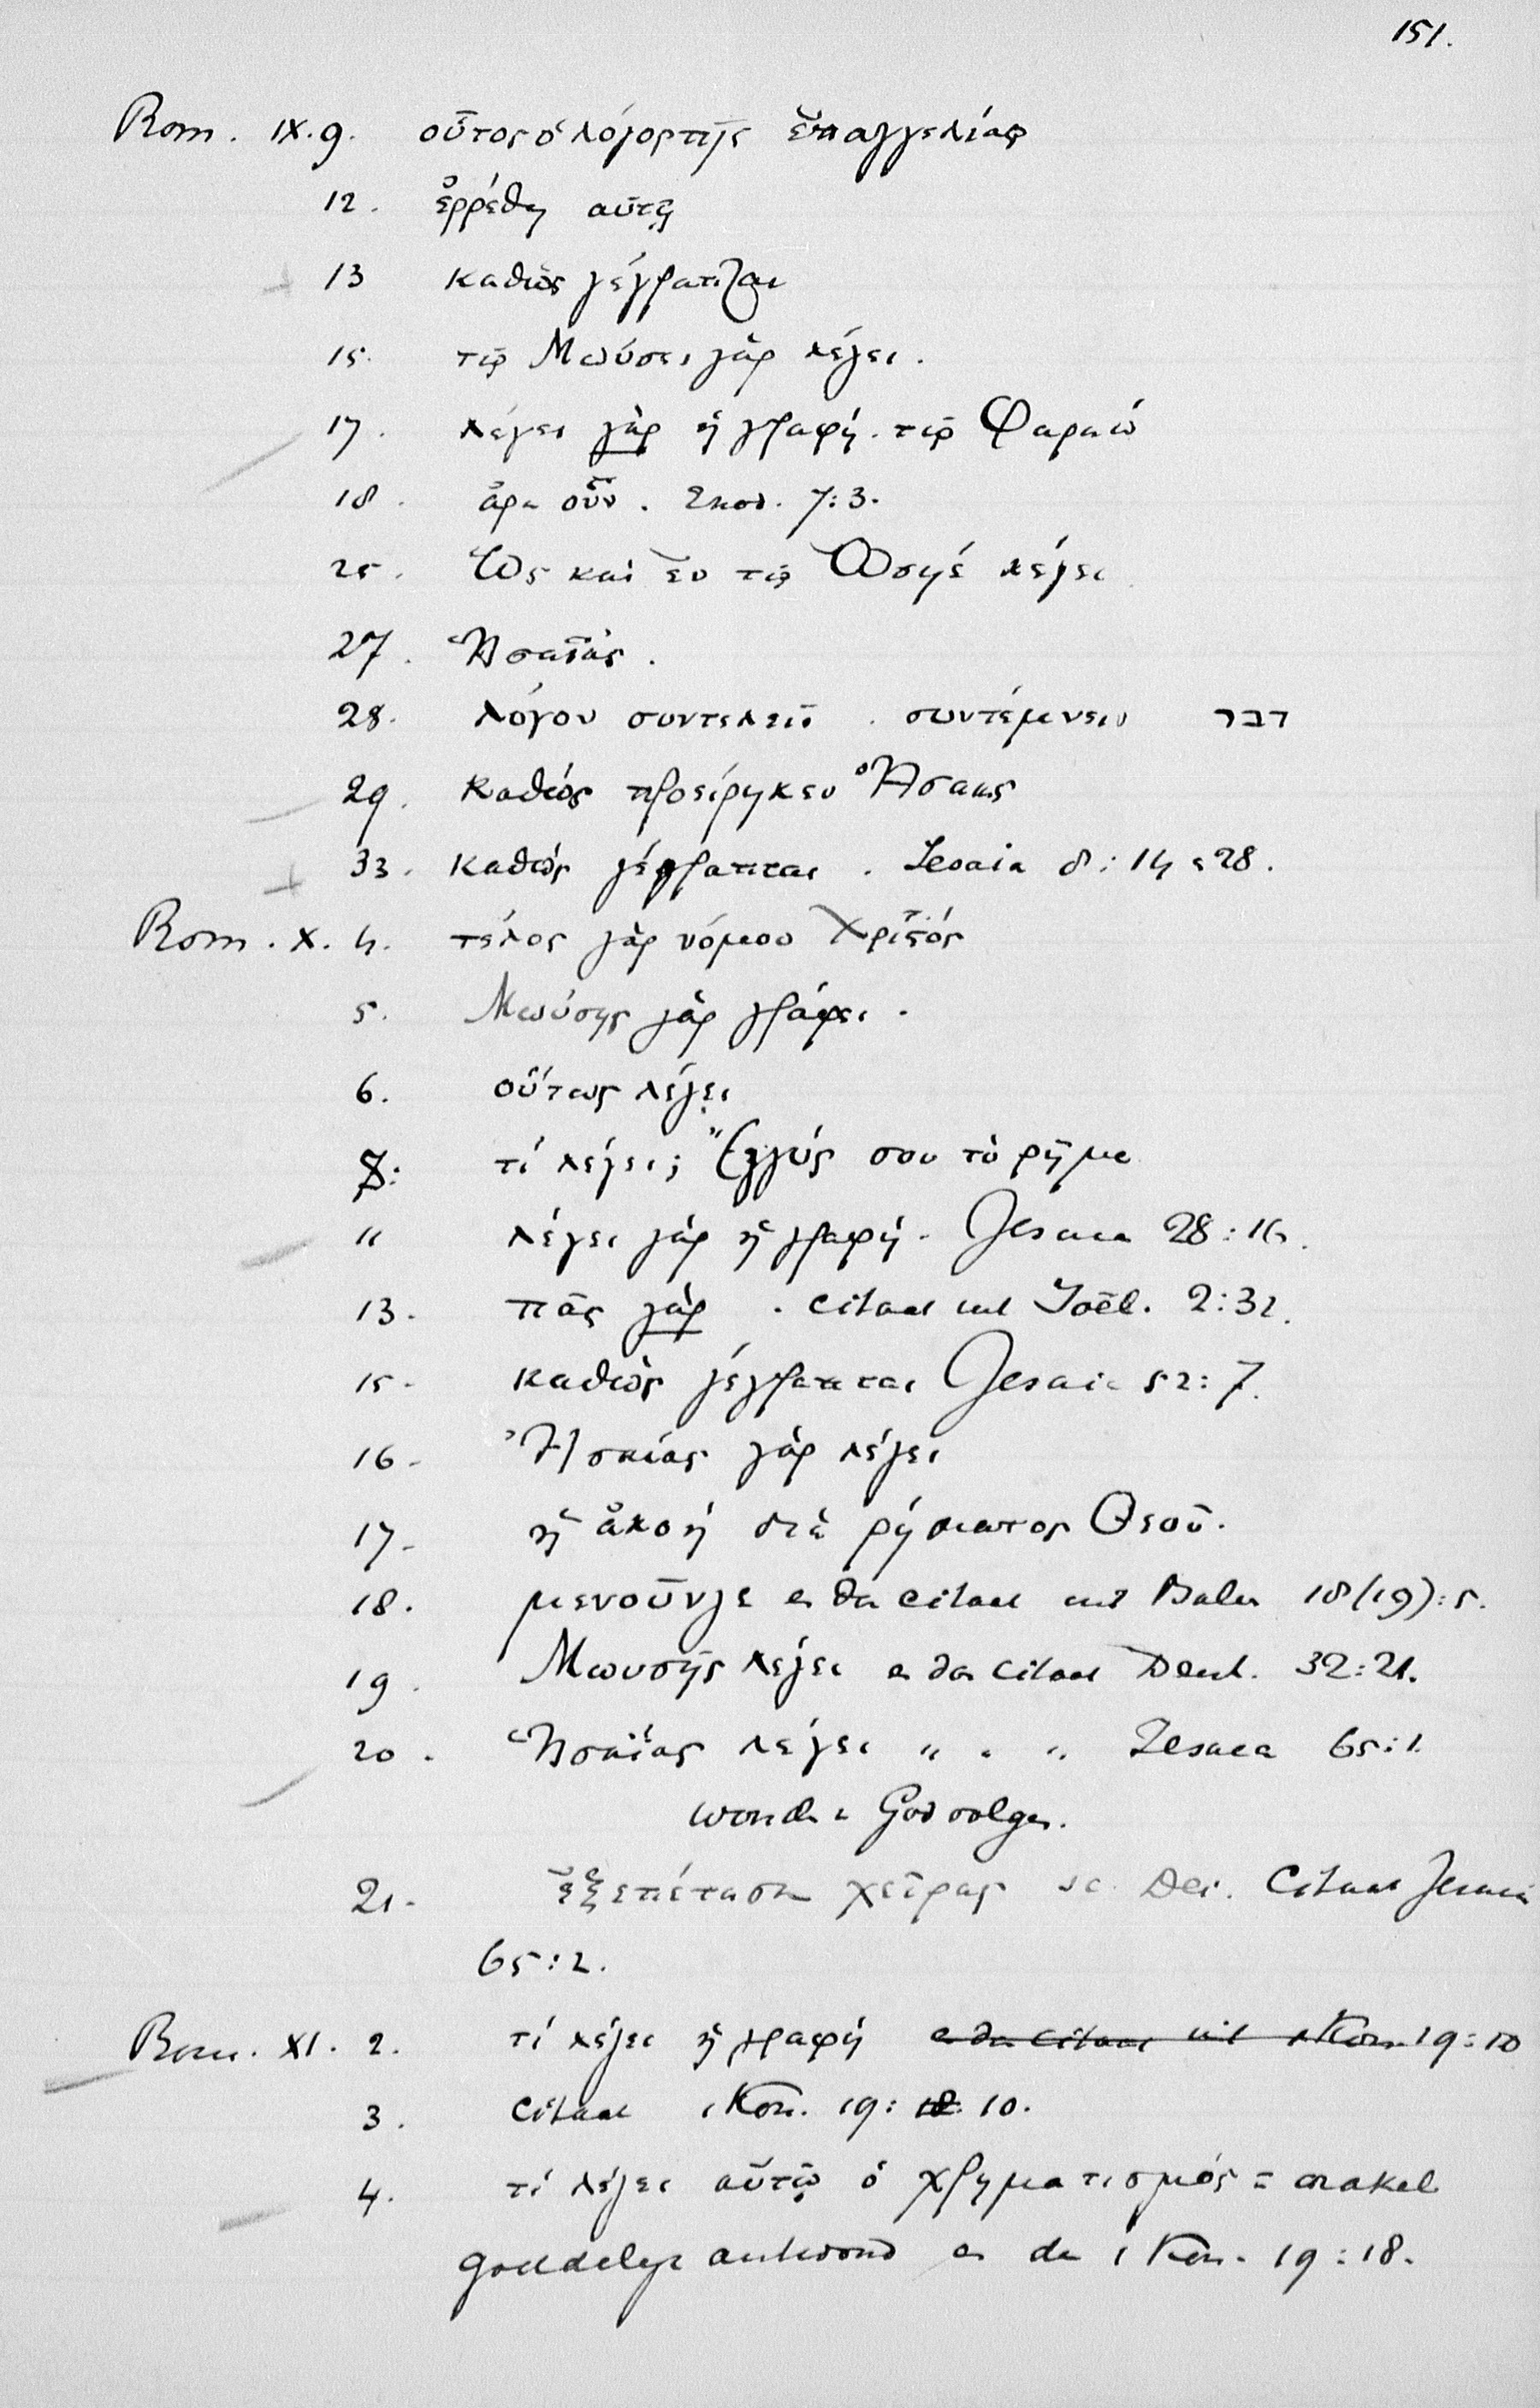 151.
Rom. IX. 9. οὗτος ὁ λόγος τῆς ἐπαγγελίας
12. ἐρρέθη αὐτῇ
13 καθὼς γέγραπται
15. τῷ Μωύσει γὰρ λέγει.
17. λέγει γὰρ ἡ γραφή. τῷ Φαραώ
18. ἄρα οὖν. Exod. 7:3.
25. Ὡς καὶ ἐν τῷ Ὡσηέ λέγει
27. Ἡσαΐας.
28. λόγον συντελεῖν. συντέμνειν דבר
29. καθὼς προείρηκεν Ἡσαιας
33. καθὼς γέγραπται. Jesaia 8:14 & 28.
Rom. X. 4. τέλος γὰρ νόμου Χριστός
5. Μωύσης γὰρ γράφει.
6. οὕτως λέγει
8: τί λέγει; "Εγγύς σου τὸ ρῆμα
" λέγει γὰρ ἡ γραφή. Jesaia 28:16.
13. πᾶς γὰρ. citaat uit Joël. 2:32.
15. καθὼς γέγραπται Jesaia 52:7.
16. Ἡσαίας γὰρ λέγει
17. ἡ ἀκοή διὰ ρήματος Θεοῦ.
18. μενοῦνγε en dan citaat uit Psalm 18(19):5.
19. Μωυσῆς λέγει en dan citaat Deut. 32:21.
20. Ἡσαΐας λέγει " " " Jesaia 65:1.
God volgen.
21. ἐξεπέτασα χεῖρας sc. Dei. Citaat Jesaia
65:2.
Rom. XI. 2. τί λέγει ἡ γραφή en dan citaat uit 1 Kon. 19:10
3. Citaat 1 Kon. 19: 18. 10.
4. τί λέγει αὐτῷ ὁ χρηματισμός = orakel
goddelijk antwoord en dan 1 Kon. 19:18.